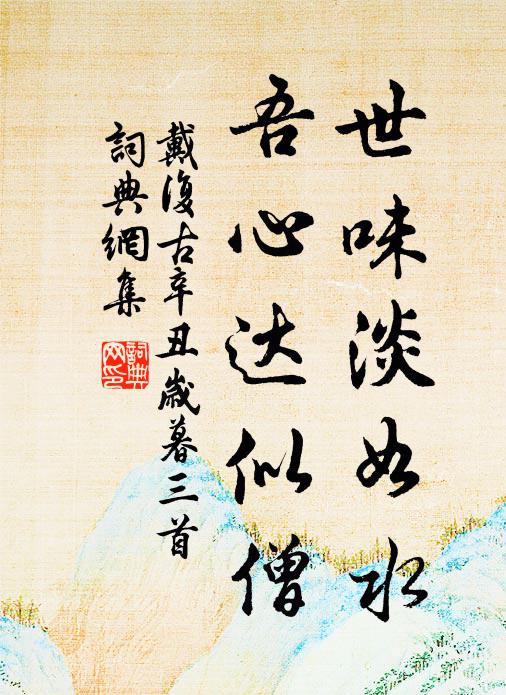 世味淡如水
吾心达似僧
戴復古辛丑歲暮三首
詞典網集
詞典網印